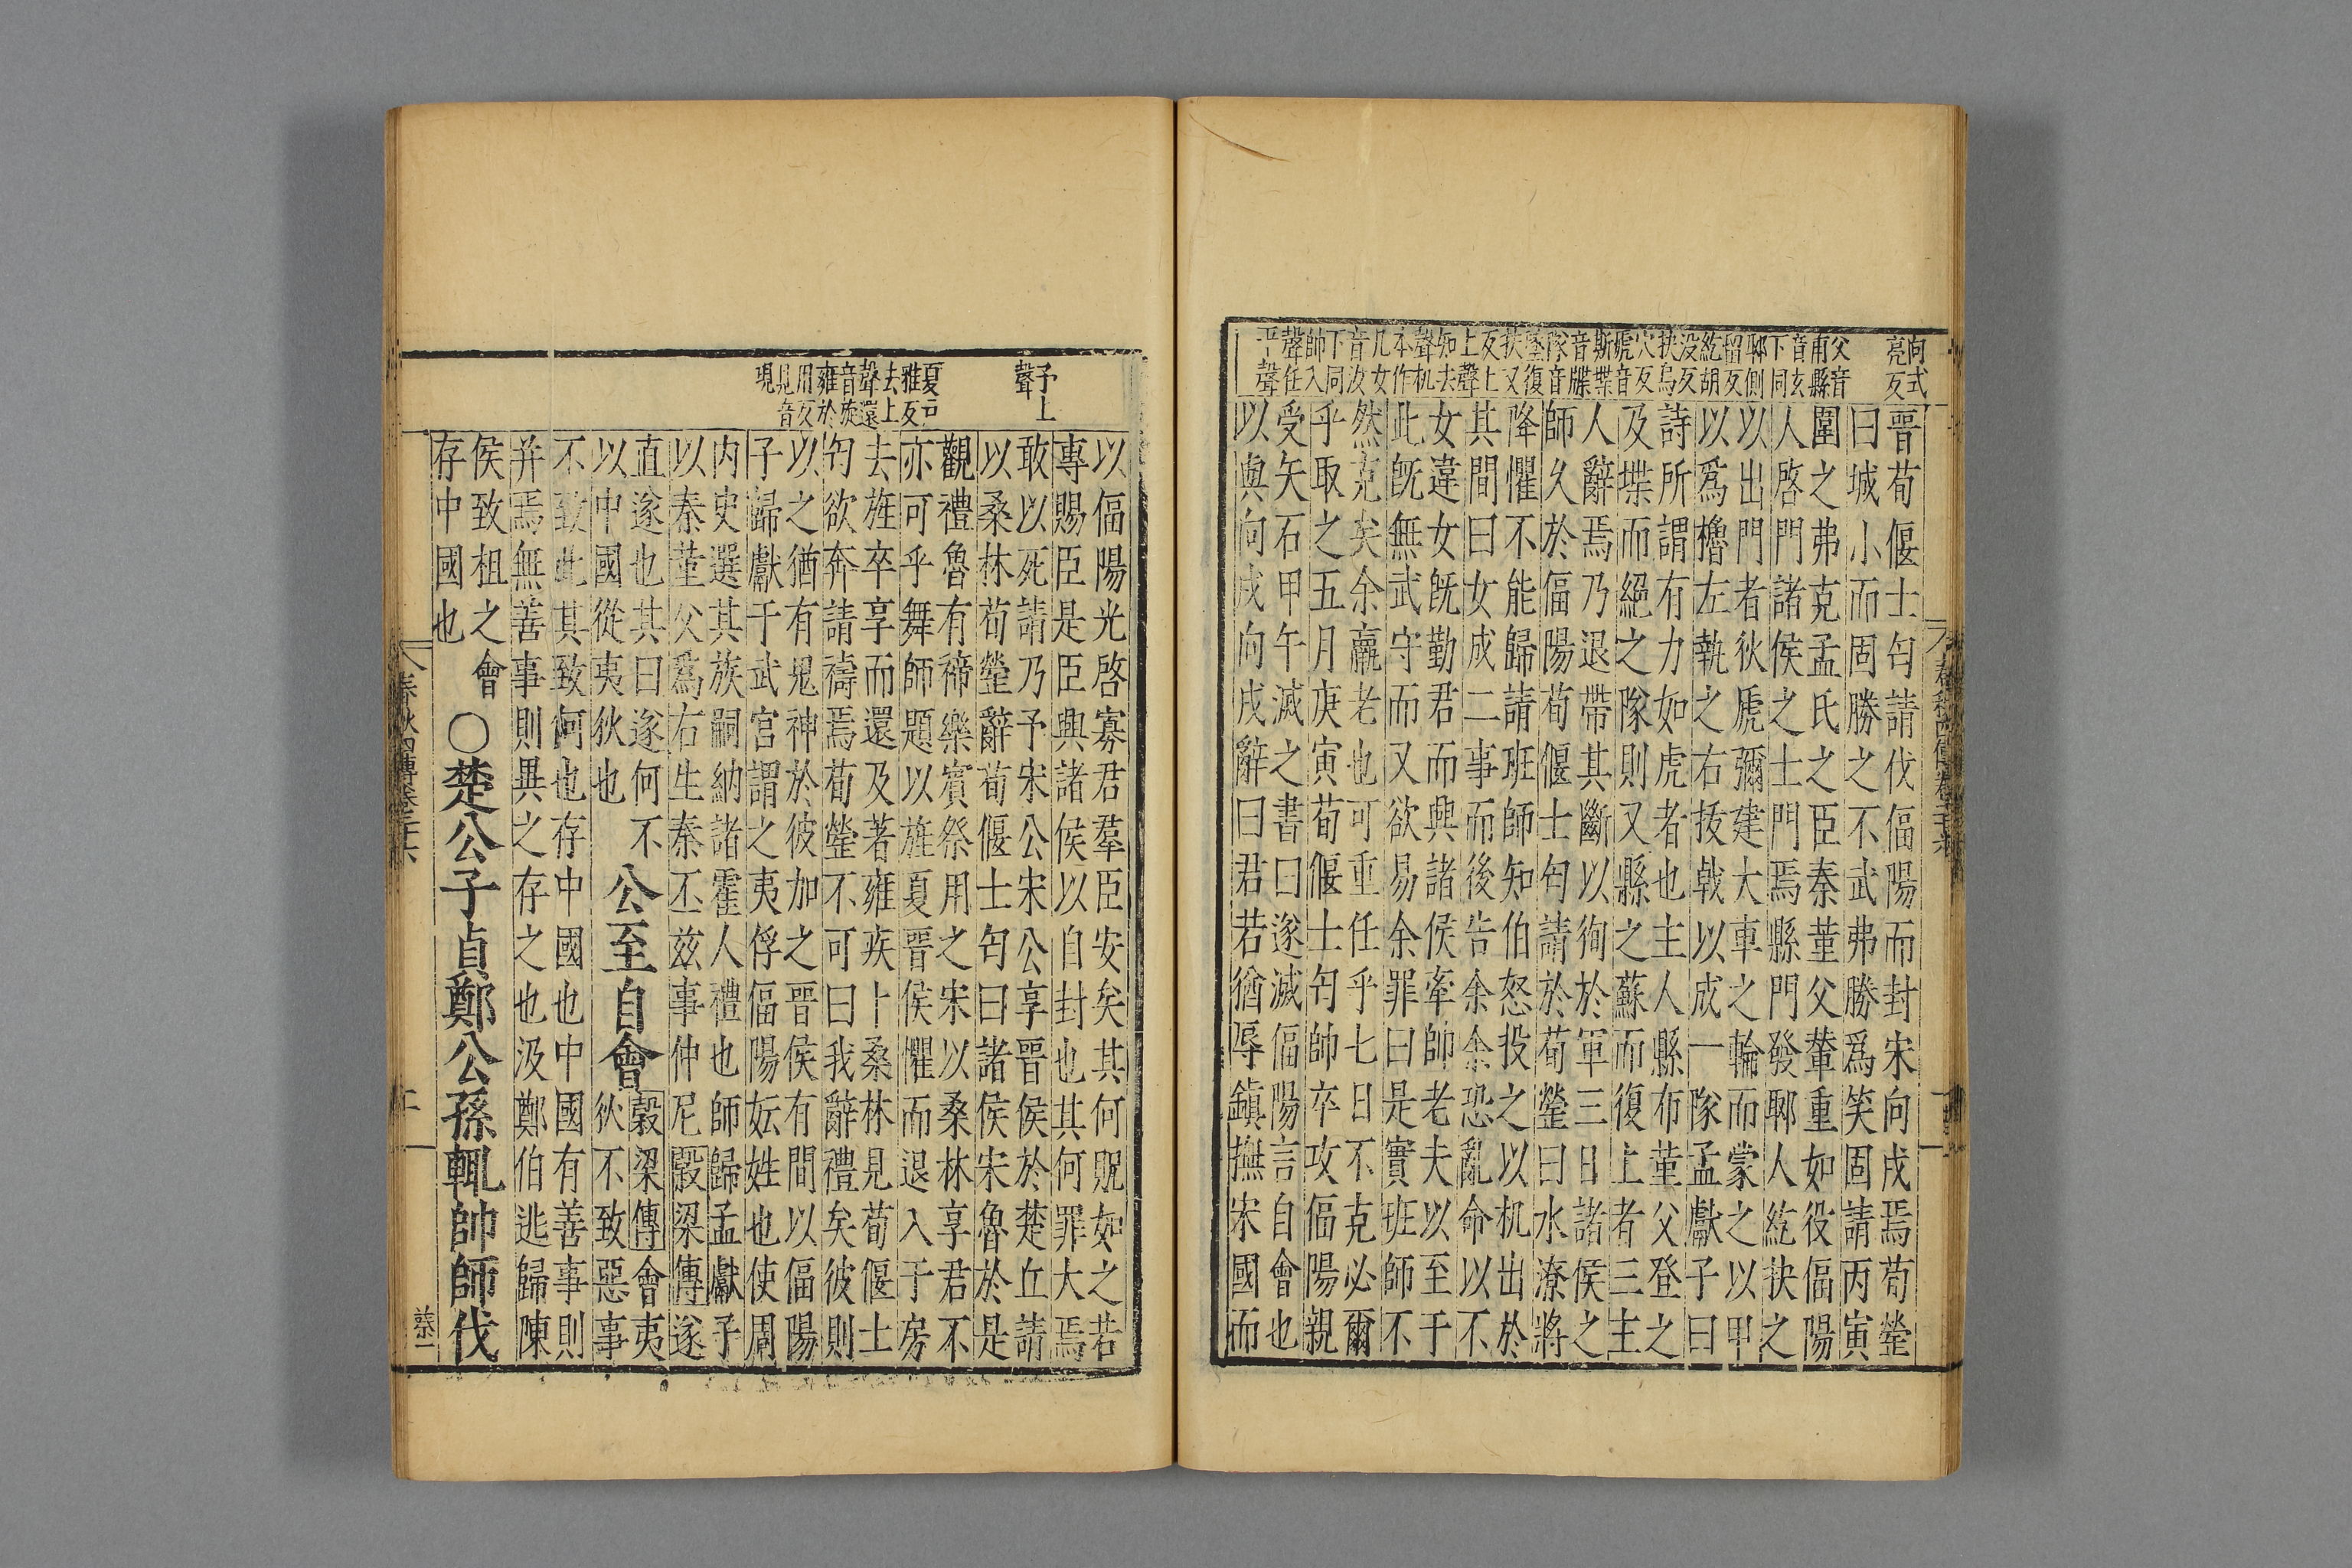 向式
亮反
父音
甫縣
音玄
下同
郰側
留反
紇胡
没反
抉烏
穴反
虒音
斯堞
音牒
隊音
墜復
扶又
反上
上聲
知去
聲机
本作
几女
音汝
下同
帥入
聲任
平聲
晉荀偃士匄請伐偪陽而封宋向戌焉荀罃
曰城小而固勝之不武弗勝爲笑固請丙寅
圍之弗克孟氏之臣秦菫父輦重如役偪陽
人啓門諸侯之士門焉縣門發郰人紇抉之
以出門者狄虒彌建大車之輪而蒙之以甲
以爲櫓左執之右拔戟以成一隊孟獻子曰
詩所謂有力如虎者也主人縣布菫父登之
及堞而絕之隊則又縣之蘇而復上者三主
人辭焉乃退帶其斷以徇於軍三日諸侯之
師久於偪陽荀偃士匄請於荀罃曰水潦將
降懼不能歸請班師知伯怒投之以机出於
其間曰女成二事而後告余余恐亂命以不
女違女旣勤君而興諸侯牽帥老夫以至于
此旣無武守而又欲易余罪曰是實班師不
然克矣余羸老也可重任乎七日不克必爾
乎取之五月庚寅荀偃士匄帥卒攻偪陽親
受矢石甲午滅之書曰遂滅偪陽言自會也
以與向戌向戌辭曰君若猶辱鎮撫宋國而
予上
聲
夏戸
雅反
去上
聲還
音旋
雍於
用反
見音
現
以偪陽光啓寡君羣臣安矣其何貺如之若
專賜臣是臣興諸侯以自封也其何罪大焉
敢以死請乃予宋公宋公享晉侯於楚丘請
以桑林荀罃辭荀偃士匄曰諸侯宋魯於是
觀禮魯有禘樂賓祭用之宋以桑林享君不
亦可乎舞師題以旌夏晉侯懼而退入于房
去旌卒享而還及著雍疾卜桑林見荀偃士
匄欲奔請禱焉荀罃不可曰我辭禮矣彼則
以之猶有鬼神於彼加之晉侯有間以偪陽
子歸獻于武宮謂之夷俘偪陽妘姓也使周
内史選其族嗣納諸霍人禮也師歸孟獻子
以秦菫父爲右生秦丕茲事仲尼 穀梁傳 遂
直遂也其曰遂何不
以中國從夷狄也
公至自會
穀梁傳 會夷
狄不致惡事
不致此其致何也存中國也中國有善事則
并焉無善事則異之存之也汲鄭伯逃歸陳
侯致柤之會
存中國也
○楚公子貞鄭公孫輒帥師伐
春秋四傳卷二十六